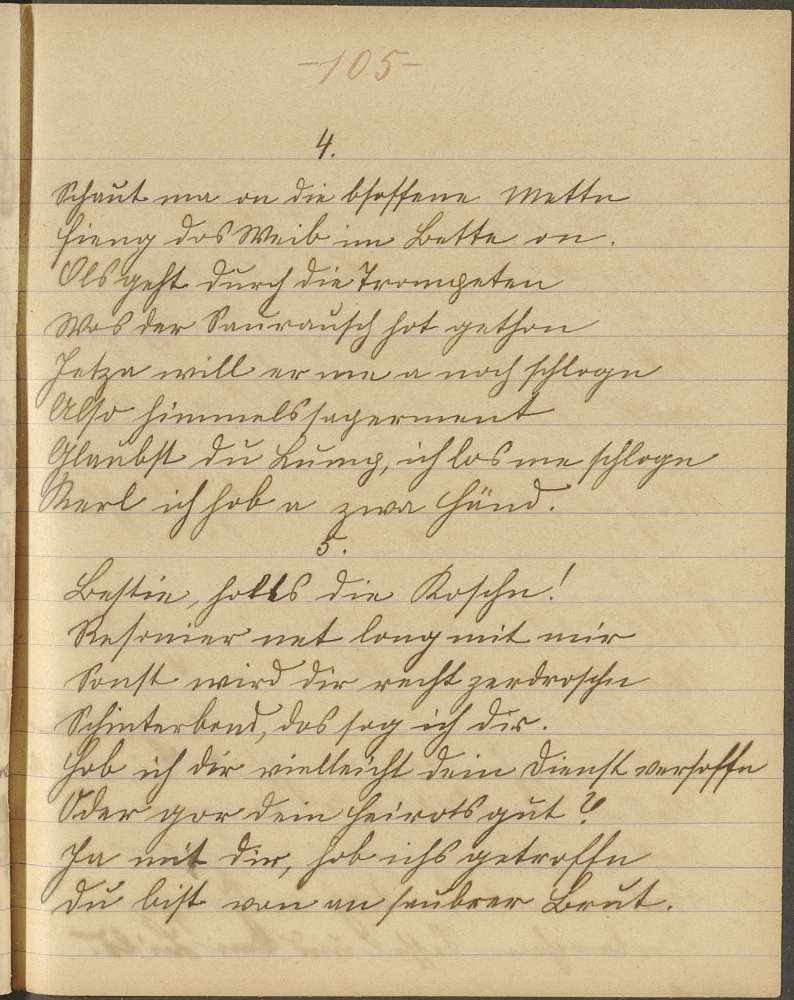 -105-
4.
Schaut ma on die bsoffene Mettn
fieng dos Weib im Bette on.
Ols geht durch die Trompeten
Wos der Saurausch hot gethon
Jetza will er me a noch schlogn
Also himmelssagerment
Glaubst du Lump, ich los me schlogn
Kerl ich hob a zwa Händ.
5.
Bestie, holts die Koschn!
Resonier net long mit mir
Sonst wird dir recht zerdroschn
Schinterbond, dos sog ich dir.
Hob ich dir vielleicht dein Dienst versoffn
Oder gor dein Heirotsgut?
Ja mit dir, hob ichs getroffn
Du bist von an saubrer Brut.